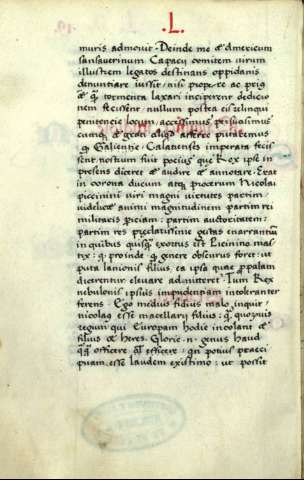 .L.
muris admovit. Deinde me & Americum
sanseverinum Capacij comitem virum
illustrem legatos destinans oppidanis
denuntiare iussit, nisi prope re ac prius
& tormenta laxari inciperent deditio
nem fecissent, nullum postea eis relinqui
penitencie locum, accessimus persuasimus
cumque & grati aliquid afferre putaremus
Galientie, Calatensis imperata fecis
sent, nostrum fuit pocius que Rex ipse in
presens diceret & audire & annotare. Erat
in corona ducum atque procerum Nicolai
piccinini viri magni virtutes partim
videlicet animi magnitudinem partim rei
militaris periciam: partim auctoritatem:
partim res preclarissime gestas enarrantium
in quibus quisquam exortus est Licinino mas
tix: qui proinde genere obscurus foret: ut
puta lanionis filius, ea ipsa quae palam
dicerentur elevare admitteret. Tum Rex
nebulonis ipsius impudentiam intoleranter
ferens. Ego medius fidius malo, inquit,
nicolaus esse macellarij filius: quam quorumvis
regum qui Europam hodie incolant &
filius & heres. Glorie .n. genus haud
quamquam officere, efficere, non potius praeci
puam esse laudem existimo: ut possit